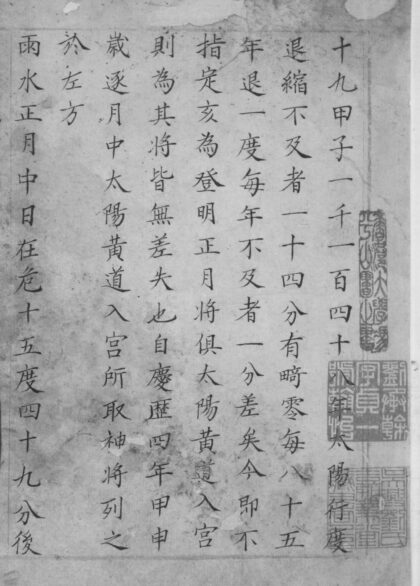 十九甲子一千一百四十八年太陽行度
退縮不及者一十四分有畸零每八十五
年退一度每年不及者一分差矣今即不
指定亥為登明正月將俱太陽黃道入宮
則為其將皆無差失也自慶曆四年甲申
歲逐月中太陽黃道入宮所取神將列之
於左方
雨水正月中日在危十五度四十九分後